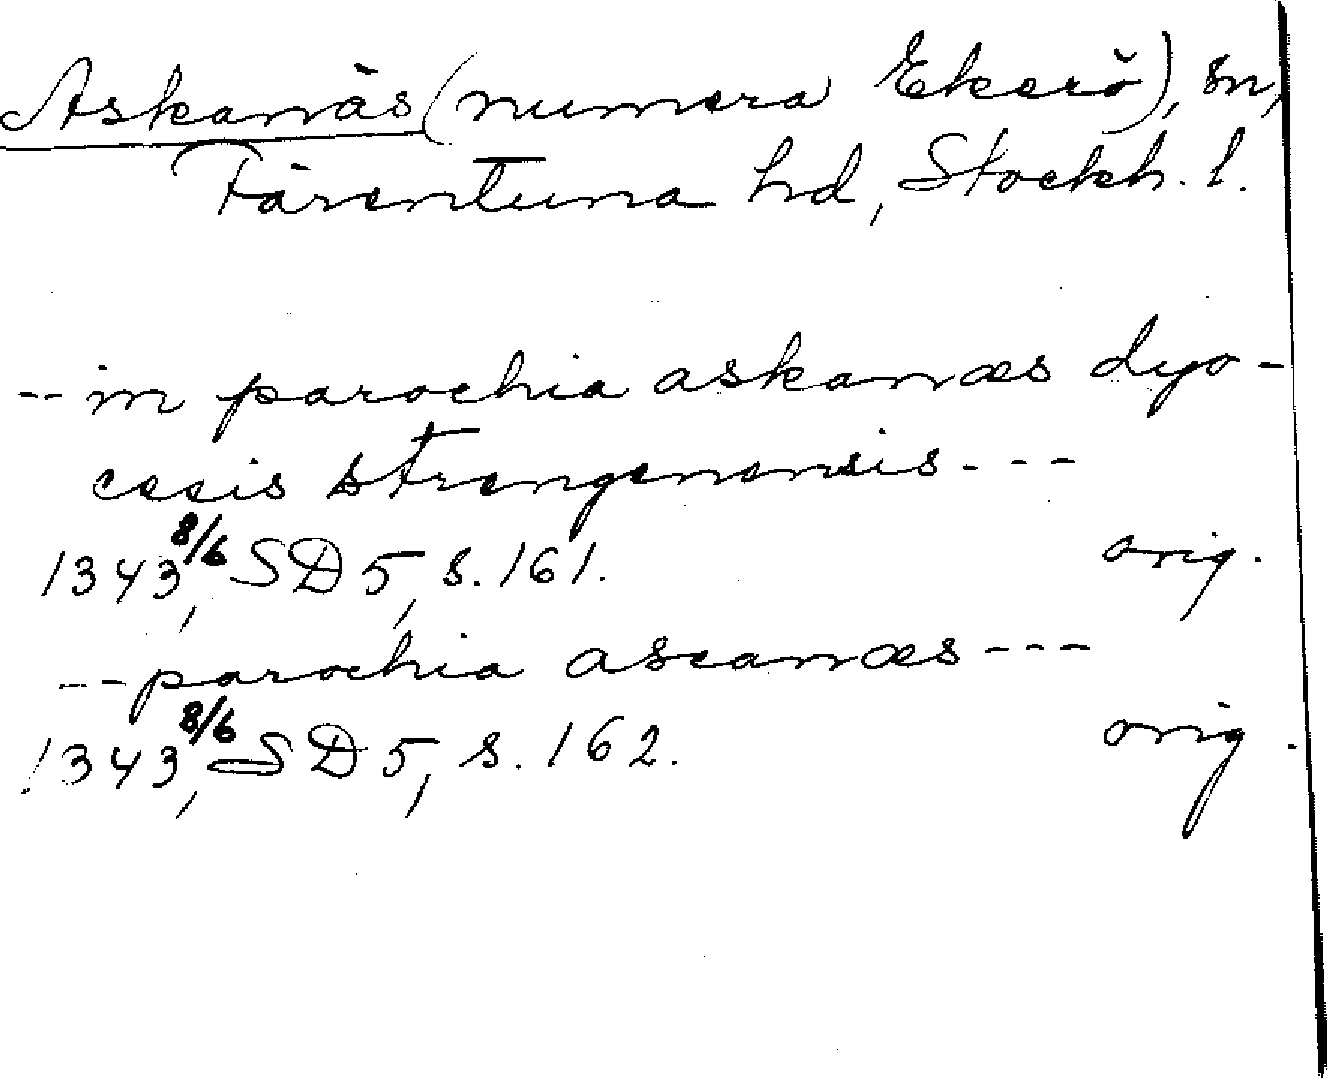 Askanäs (numera Ekerö), sn,
Färentuna hd, Stockh. l.
-- in parochia askanæs dyo-
cesis strengenensis ---
1343, 8/6 SD 5, s. 161. orig.
-- parochia ascanæs ---
1343, 8/6 SD 5, s. 162. orig.